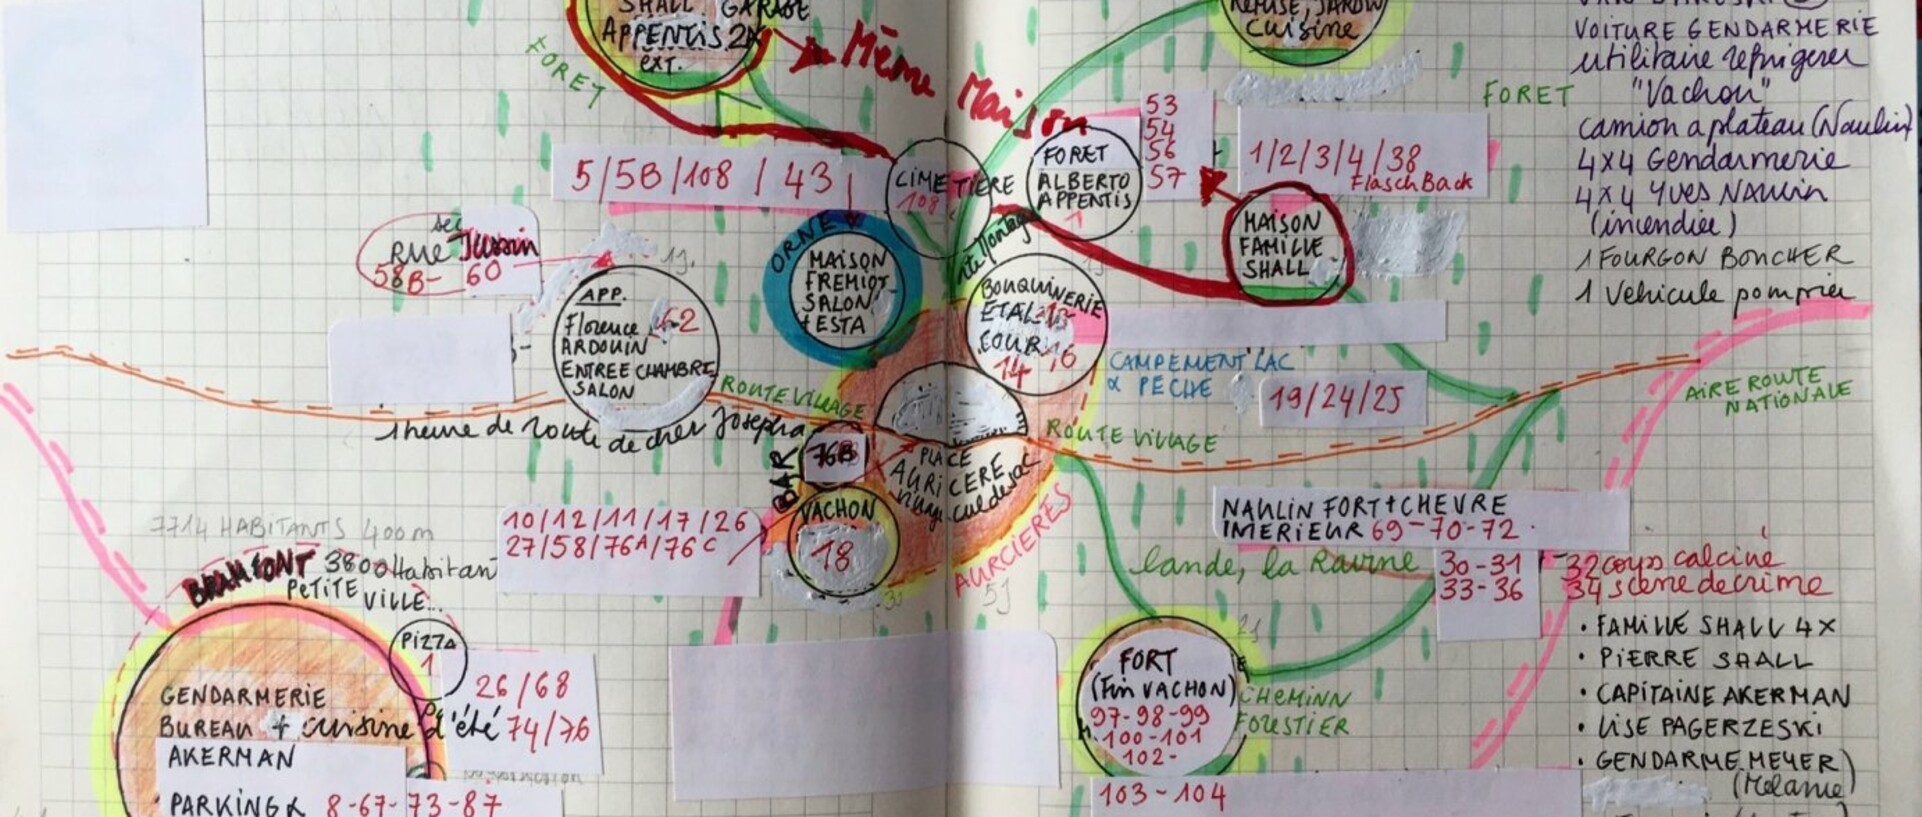 SHALL GARAGE
APPENTIS 2X
EXT.
FORET
Même Maison
REFUSE, JARDIN
Cuisine
VOITURE GENDARMERIE
utilitaire réfrigerer
"Vachon"
camion a plateau (Naulin)
4x4 Gendarmerie
4x4 Yves Naulin
(incendiée)
1 FOURGON BONCHER
1 Vehicule pompier
FORET
53
54
56
57
1/2/3/4/38
FlaschBack
5/5B/108 / 43
CIMETIERE
108
FORET
ALBERTO
APPENTIS
1
MAISON
FAMILLE
SHALL
sec
RUE Jussin
58B- 60
ORNE
MAISON
FREMIOT
SALON
+ ESTA
BOUQUINERIE
ETAL
COUR 16
14
APP.
Florence 62
ARDOUIN
ENTREE CHAMBRE
SALON
CAMPEMENT LAC
& PÊCHE
19/24/25
AIRE ROUTE
NATIONALE
ROUTE VILLAGE
ROUTE VILLAGE
1 heure de route de chez Josepha
BAR
76B
PLACE
AURICERE
village culdesac
VACHON
18
AURCIERES
5J
10/12/11/17/26
27/58/76A/76C
NAULIN FORT+CHEVRE
INTERIEUR 69-70-72
lande, la Ravine
30-31
33-36
32 corps calciné
34 scène de crime
7714 HABITANTS 400m
BRAMFONT 3800 Habitant
PETITE VILLE...
PIZZA
1
26/68
74/76
GENDARMERIE
BUREAU + cuisine d'été
AKERMAN
PARKING & 8-67-73-87
FORT
(Fin VACHON)
97-98-99
100-101
102-
103-104
CHEMINN
FOURESTIER
• FAMILLE SHALL 4X
• PIERRE SHALL
• CAPITAINE AKERMAN
• LISE PAGERZESKI
• GENDARME MEYER
(Mélanie)